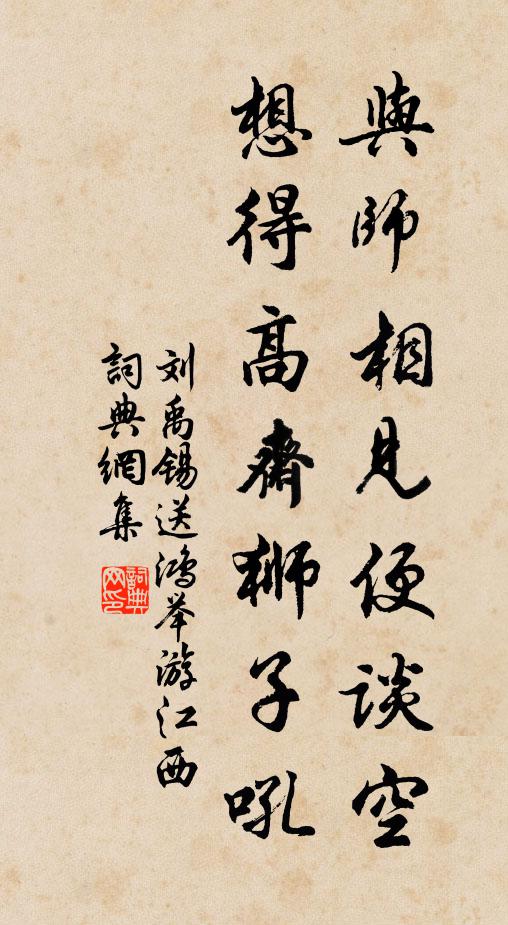 與師相見便談空
想得高齋獅子吼
刘禹锡送鴻举游江西
詞典網集
詞典
网印